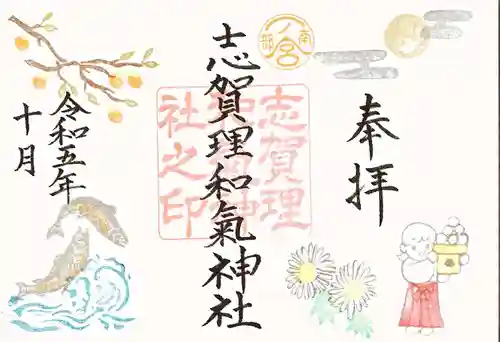 奉拝
南部
一ノ宮
志賀理和氣神社
志賀理
和氣神
社之印
令和五年
十月